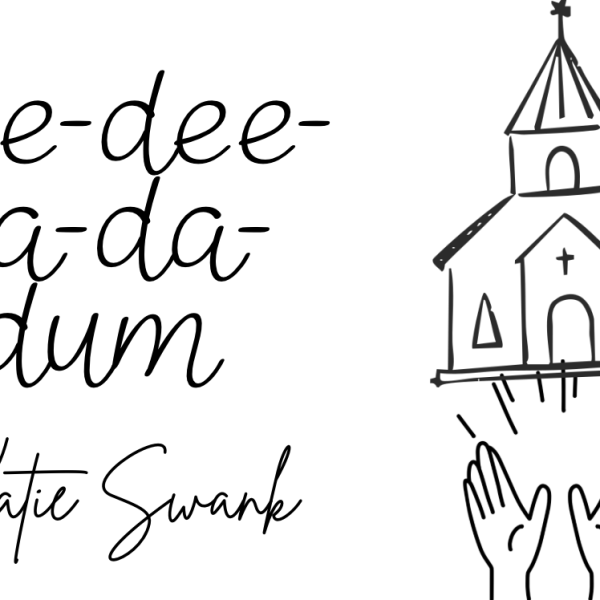 e-dee-
a-da-
dum
atie Swank